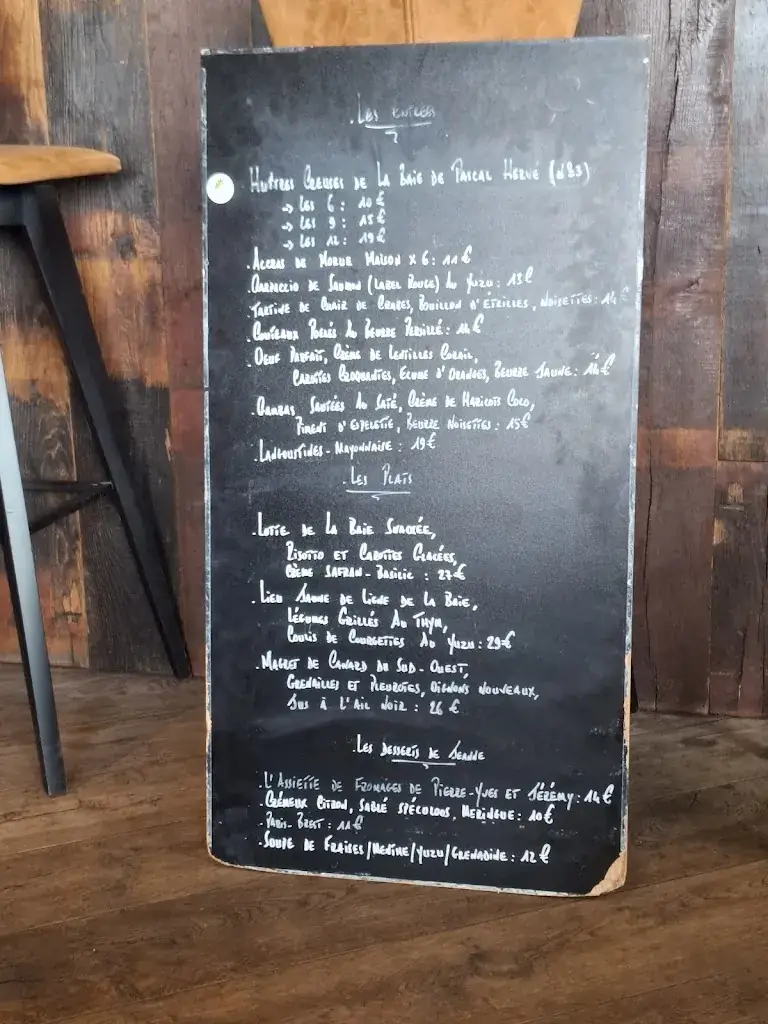 . Les Entrées
Huîtres Creuses de La Baie de Pascal Hervé (n°3)
→ Les 6 : 10 €
→ Les 9 : 15 €
→ Les 12 : 19 €
. Accras de Morue Maison x 6 : 11 €
. Carpaccio de Saumon (Label Rouge) Au Yuzu : 13 €
. Tartine de Chair de Crabes, Bouillon d'Etrilles, Noisettes : 14 €
. Couteaux Poêlés Au Beurre Persillé : 14 €
. Oeuf Parfait, Crème de Lentilles Corail,
Carottes Croquantes, Ecume d'Oranges, Beurre Jaune : 14 €
. Gambas Sautées Au Saté, Crème de Haricots Coco,
Piment d'Espelette, Beurre Noisettes : 15 €
. Langoustines - Mayonnaise : 19 €
. Les Plats
. Lotte de La Baie Snackée,
Risotto et Carottes Glacées,
Crème Safran - Basilic : 27 €
. Lieu Jaune de Ligne de La Baie,
Légumes Grillés Au Thym,
Coulis de Courgettes Au Yuzu : 29 €
. Magret de Canard du Sud-Ouest,
Grenailles et Pleurotes, Oignons Nouveaux,
Jus à L'Ail Noir : 26 €
. Les Desserts de Jeanne
. L'Assiette de Fromages de Pierre-Yves et Jérémy : 14 €
. Crémeux Citron, Sablé Spéculoos, Meringue : 10 €
. Paris-Brest : 11 €
. Soupe de Fraises/Menthe/Yuzu/Grenadine : 12 €